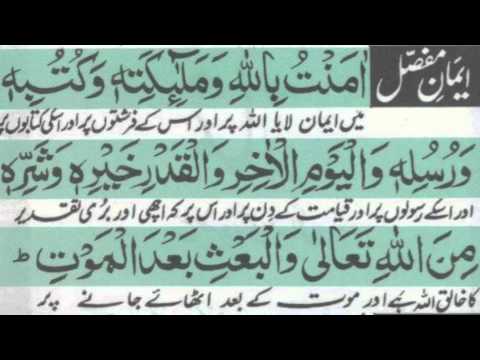 ایمانِ مفصّل
اٰمَنْتُ بِاللّٰهِ وَمَلٰٓئِكَتِهٖ وَكُتُبِهٖ
میں ایمان لایا اللہ پر اور اس کے فرشتوں پر اور اسکی کتابوں پر
وَرُسُلِهٖ وَالْيَوْمِ الْاٰخِرِ وَالْقَدْرِ خَيْرِهٖ وَشَرِّهٖ
اور اسکے رسولوں پر اور قیامت کے دِن پر اور اس پر کہ اچھی اور بُری تقدیر
مِنَ اللّٰهِ تَعَالٰى وَالْبَعْثِ بَعْدَ الْمَوْتِ ؕ
کا خالق اللہ ہے اور موت کے بعد اٹھائے جانے پر